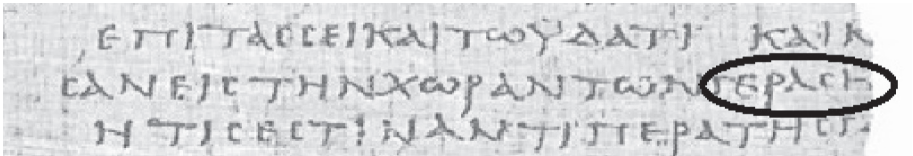 ΕΠΙΤΑϹϹΕΙΚΑΙΤΩΫΔΑΤΙ ΚΑΙΚ
ϹΑΝΕΙϹΤΗΝΧΩΡΑΝΤΩΝΓΕΡΑϹΗ
ΗΤΙϹΕϹΤΙΝΑΝΤΙΠΕΡΑΤΗϹΓ